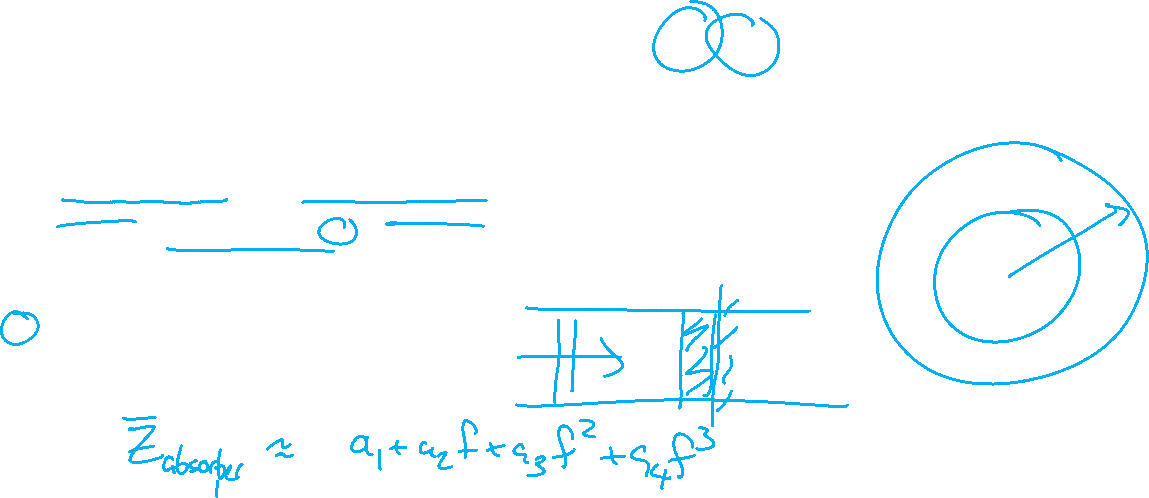 Z̅absorber ≈ a₁ + a₂f + a₃f² + a₄f³